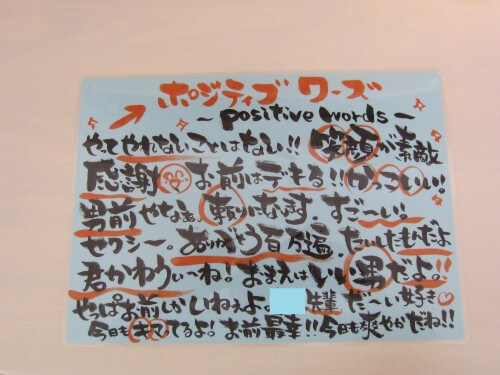 ポジティブ ワーズ
~ positive words ~
やってやれないことはない!! 笑顔が素敵
感謝 お前はデキる!! かっこいい!
男前やなぁ。頼りになります。すごーい。
セクシー。ありがとう百万遍 たいしたもんだよ
君かわうぃーね! おまえはいい男だよ!!
やっぱお前しかいねぇよ。 先輩 だーい好き
今日もキマってるよ! お前最幸!! 今日も爽やかだね!!